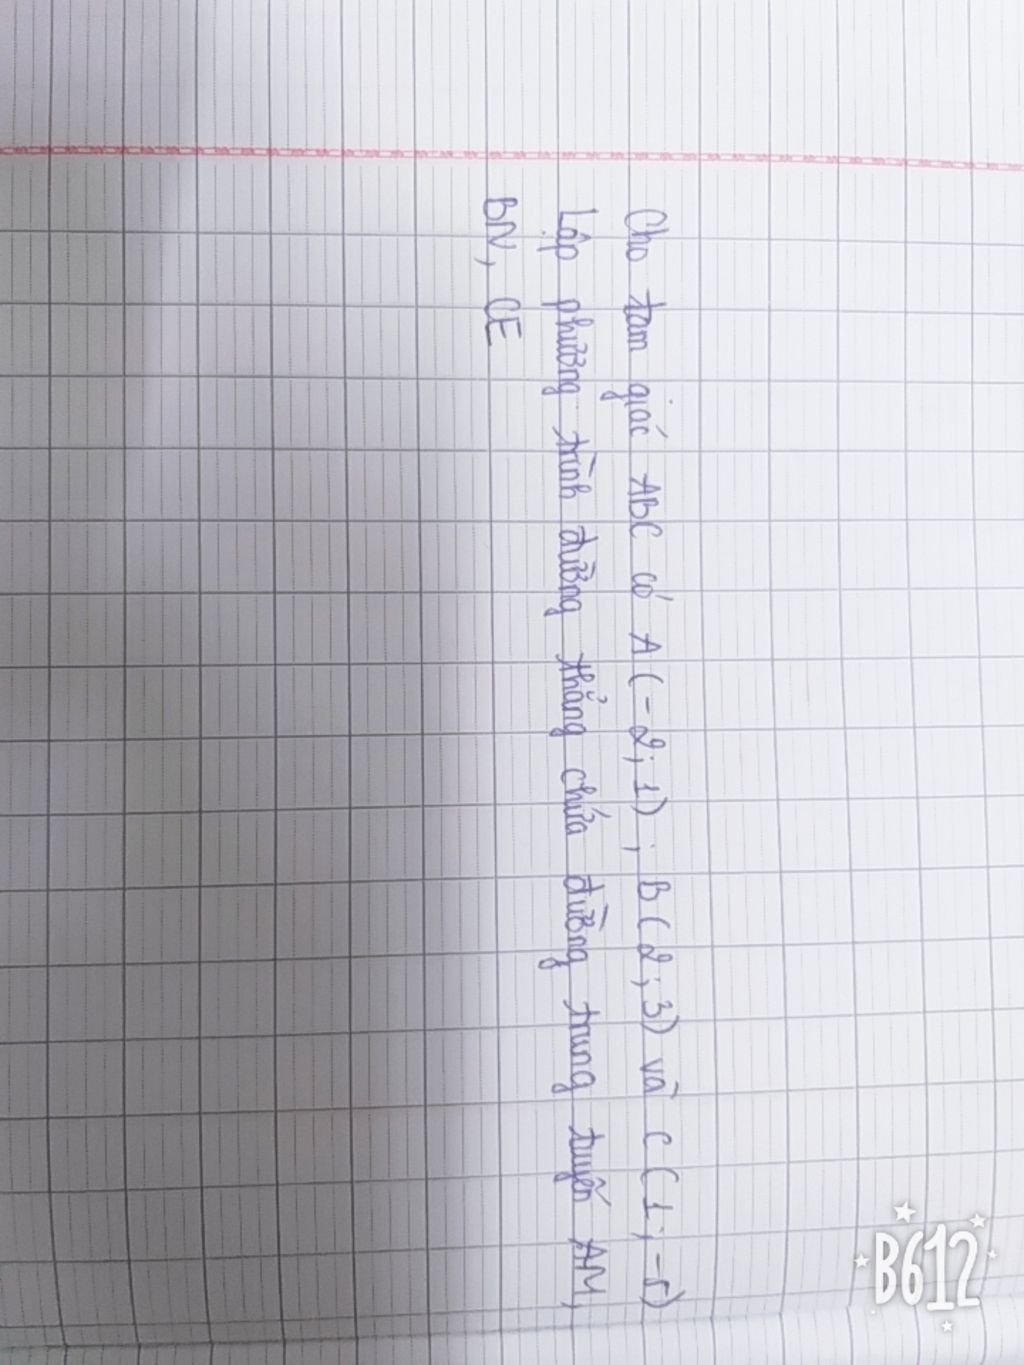 Cho tam giác ABC có A (-2; 1) ; B (2; 3) và C (1; -5)
Lập phương trình đường thẳng chứa đường trung tuyến AM,
BN, CE
B612